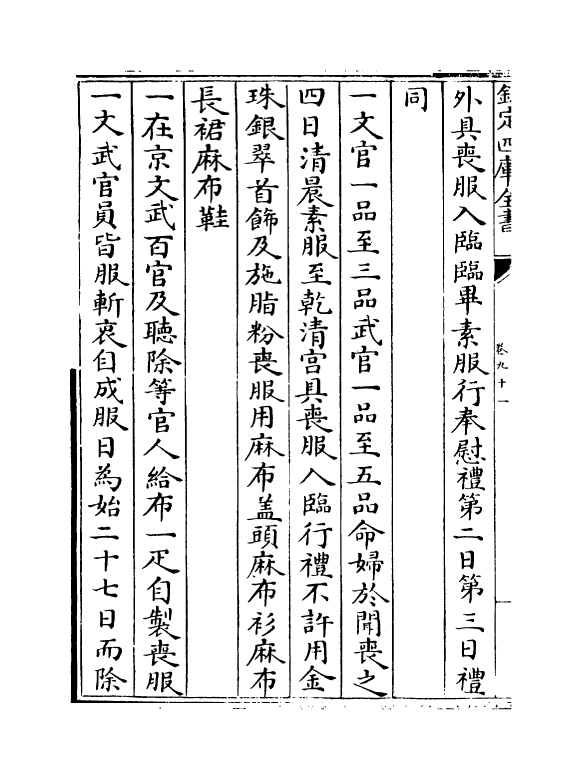 欽定四庫全書
卷九十一
外具喪服入臨臨畢素服行奉慰禮第二日第三日禮
同
一文官一品至三品武官一品至五品命婦於聞喪之
四日清晨素服至乾清宫具喪服入臨行禮不許用金
珠銀翠首飾及施脂粉喪服用麻布盖頭麻布衫麻布
長裙麻布鞋
一在京文武百官及聴除等官人給布一疋自製喪服
一文武官員皆服斬衰自成服日為始二十七日而除